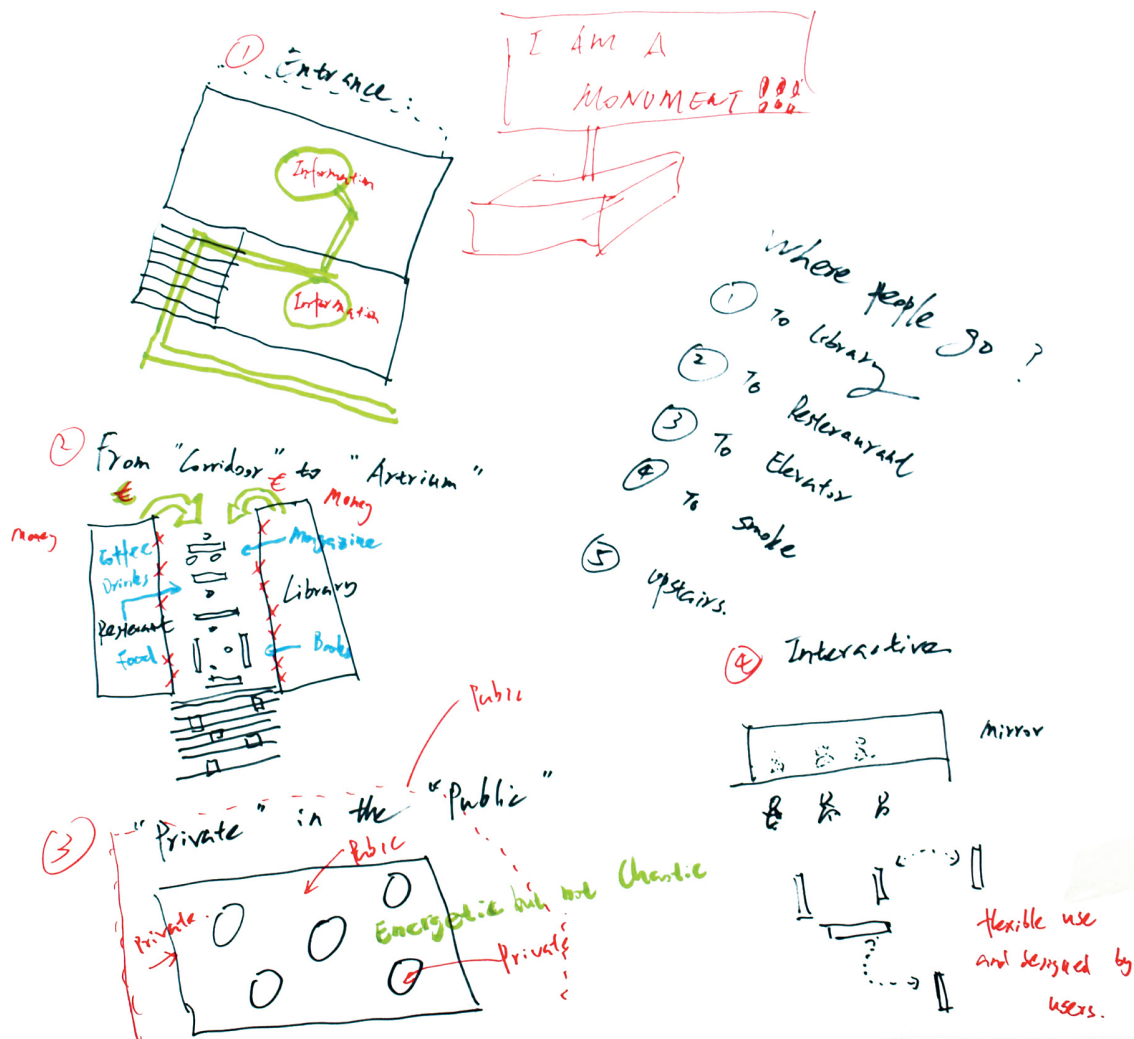 ① Entrance:
Information
Information
I AM A
MONUMENT !!!
Where people go ?
① To Library
② To Resteraurand
③ To Elevator
④ To smoke
⑤ upstairs.
② From "Corridoor" to "Artrium"
€
€
Money
Money
Coffee
Drinks
Resterant
Food
Magazine
Library
Books
③ "Private" in the "Public"
Pubic
Pubic
Private
Private
Energetic but not Chaotic
④ Interactive
Mirror
flexible use
and designed by
users.